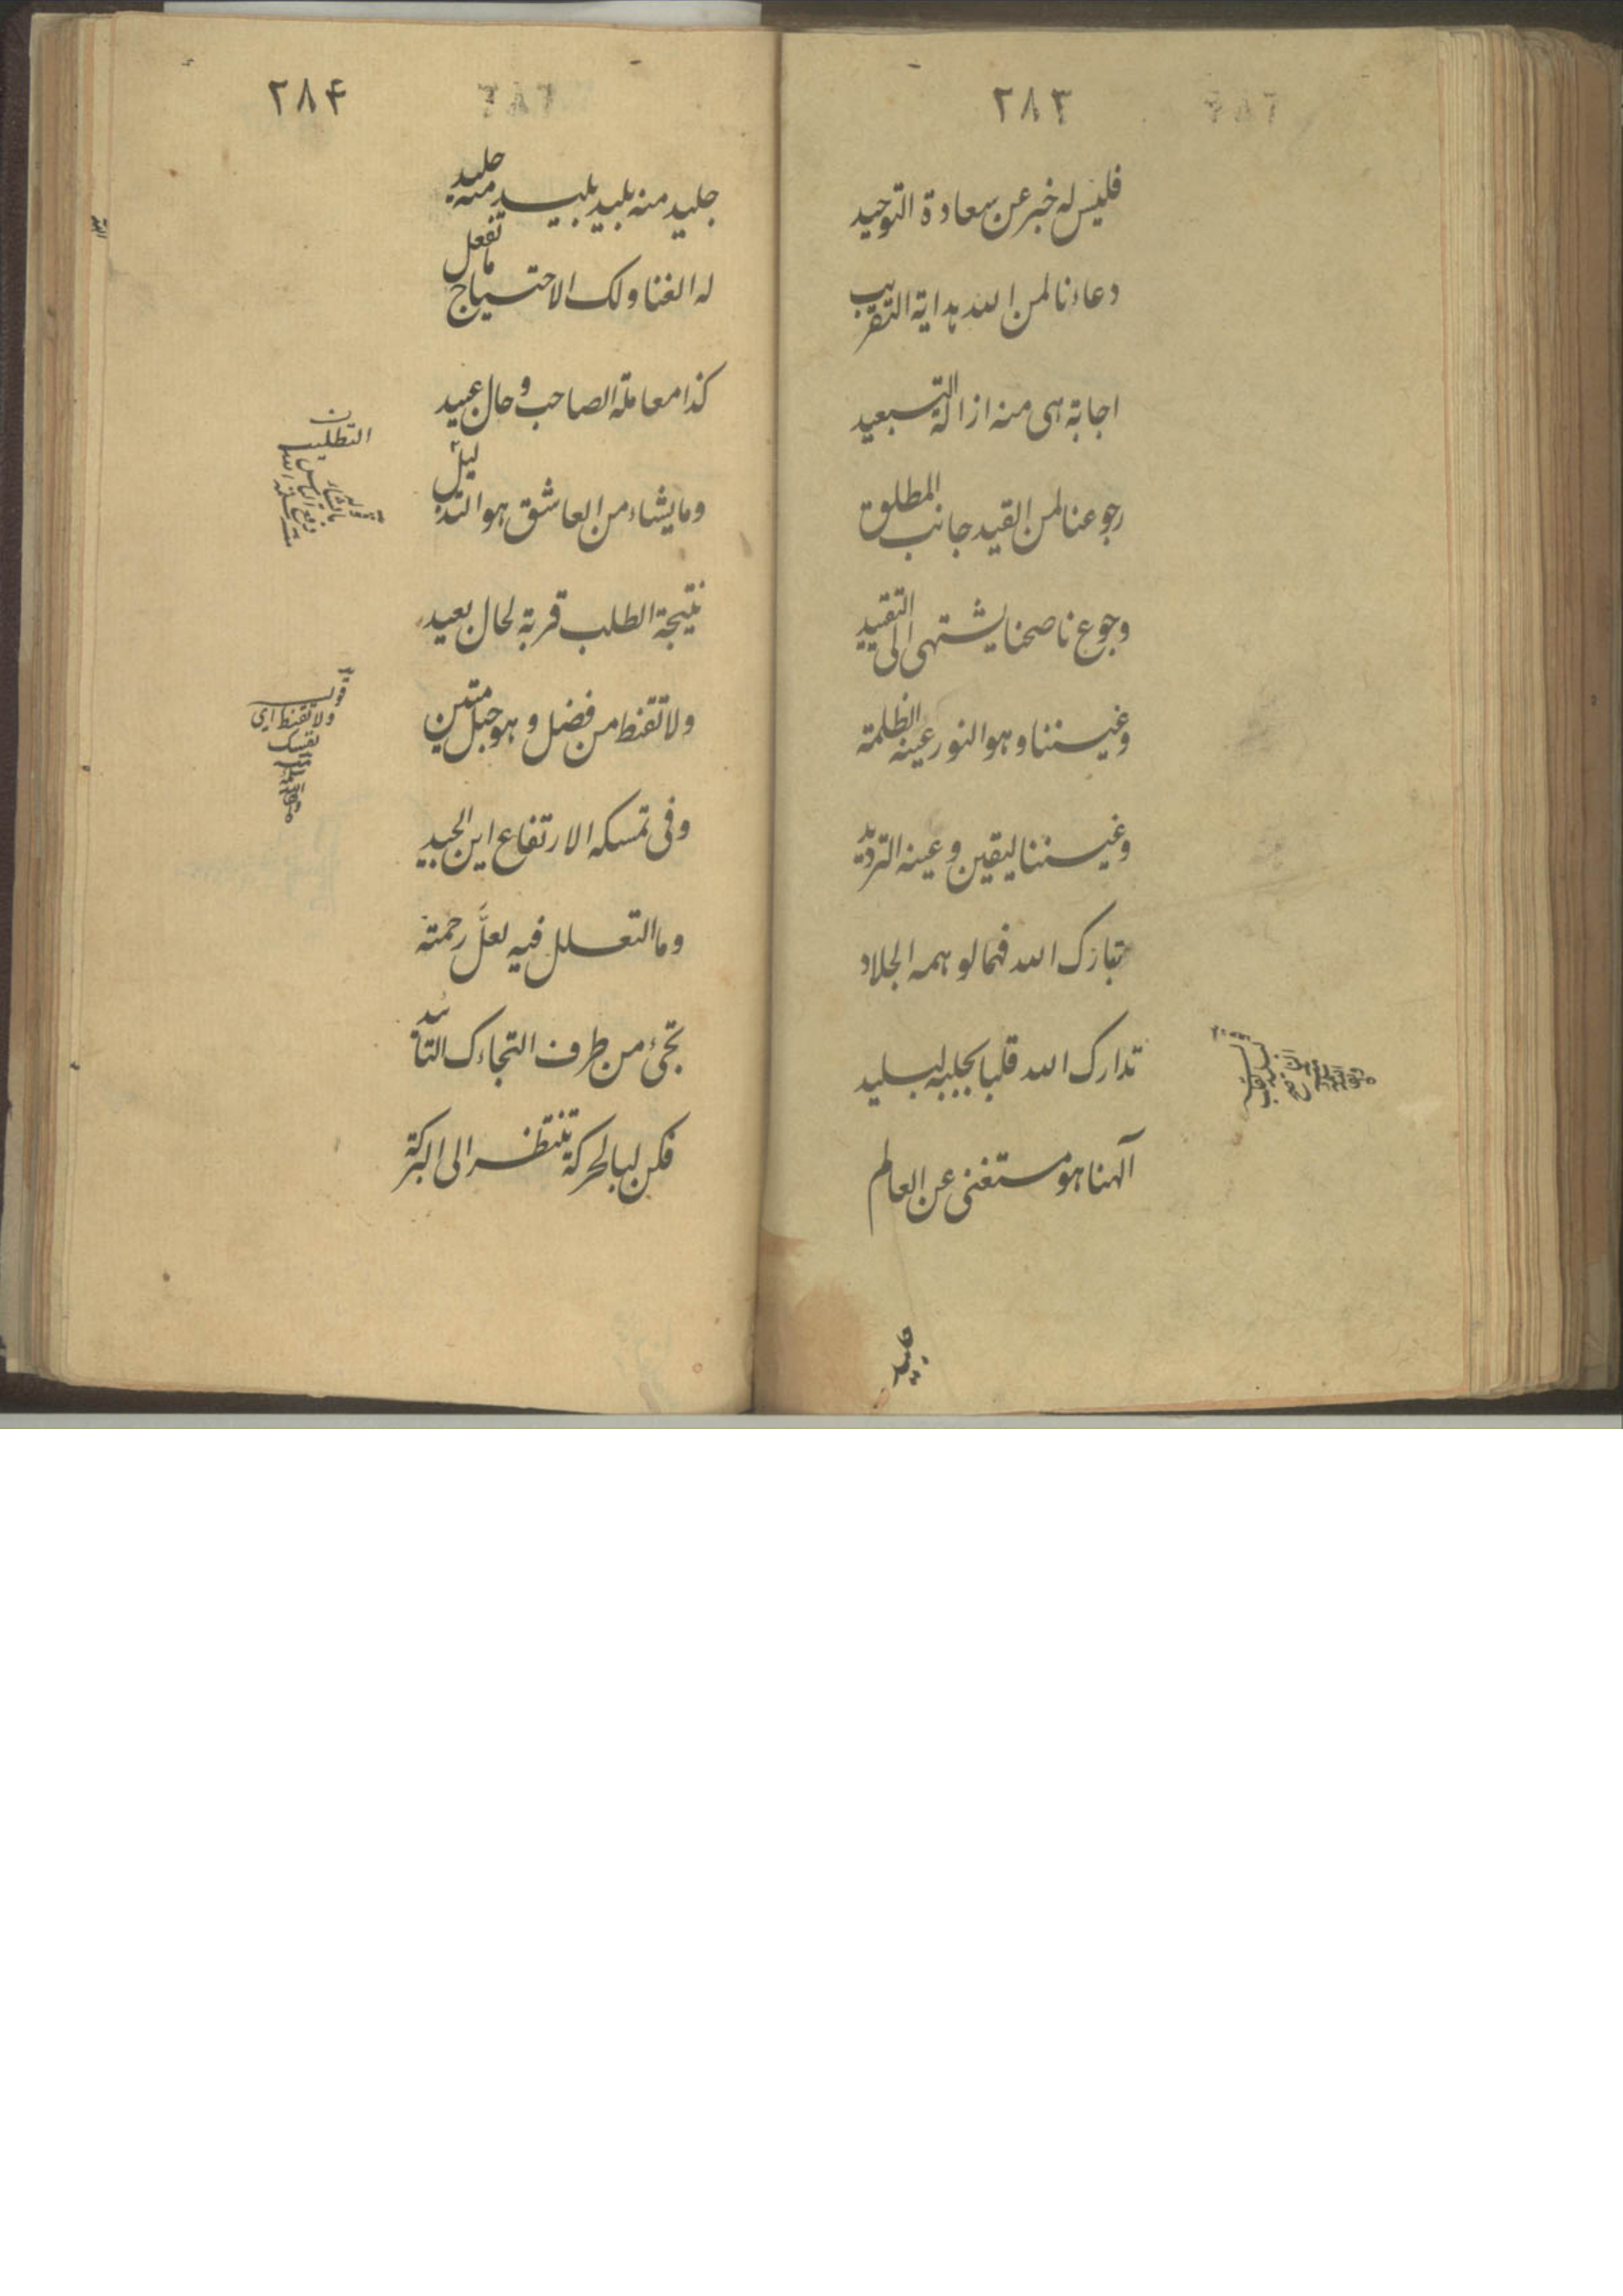 ٢٨٣
فليس له خبر عن سعادة التوحيد
دعاءنا لمن الله بداية التقريب
اجابة هى منه ازالة التبعيد
رجوعنا لمن القيد جانب المطلوق
وجوع ناصحنا يشتهى الى التقييد
وغيننا وهو النور عينه الظلمة
وغيننا ليقين وعينه الترديد
تبارك الله فمالو همه الجلاد
تدارك الله قلبا بجلبه لبليد
آلهنا هو مستغنى عن العالم
٢٨۴
جليد منه بليد بليد منه جليد
له الغنا ولك الاحتياج ما تفعل
كذا معاملة الصاحب و حال عبيد
وما يشاء من العاشق هو التذليل
نتيجة الطلب قربة لحال بعيد
ولا تقنط من فضل وهو حبل متين
وفى تمسكه الارتفاع اين الجيد
وما التعلل فيه لعلّ رحمته
تجئ من طرف التجاءك التائد
فكن لبا لحركة تنتظر الى البركة
التطليب
قوله
ولا تقنط اى